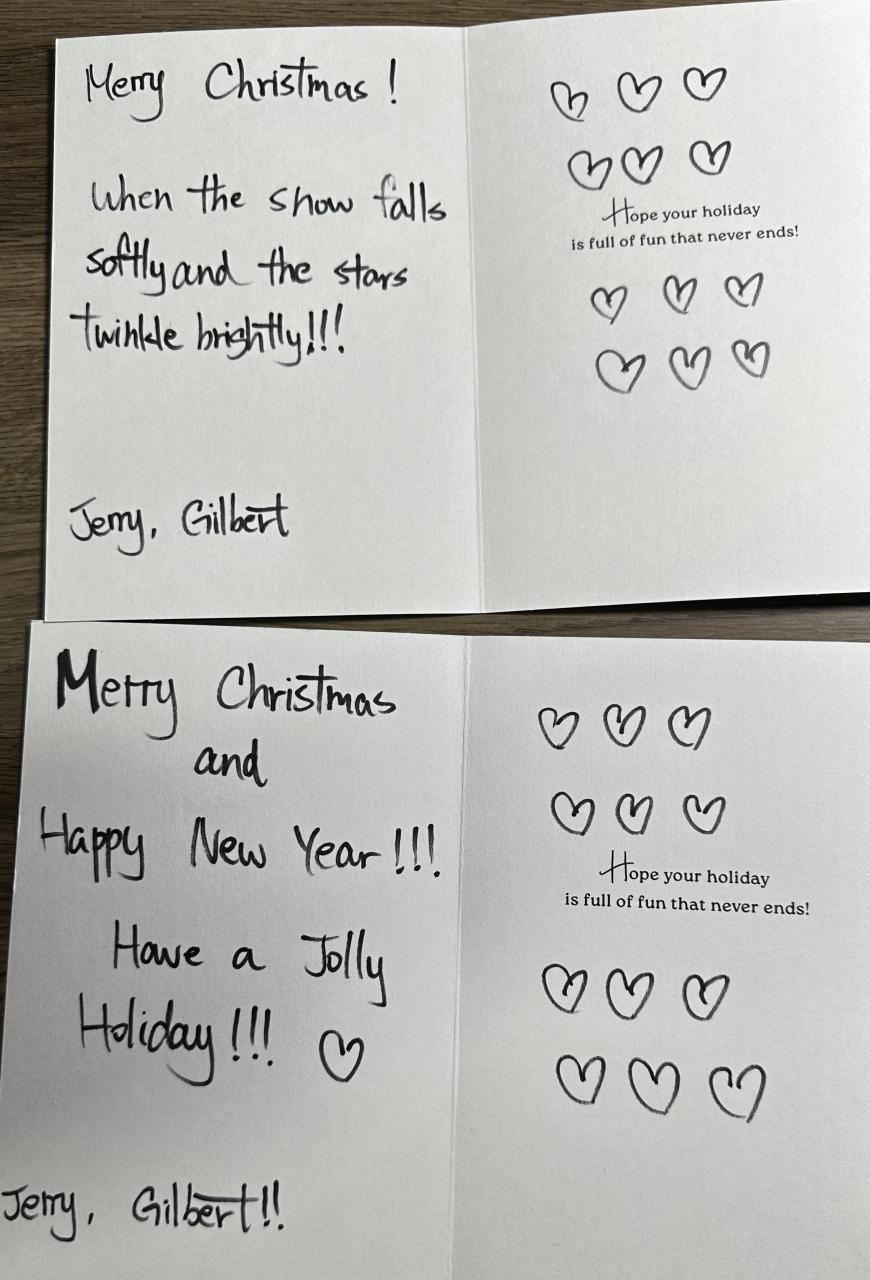 Merry Christmas!
When the snow falls
softly and the stars
twinkle brightly!!!
Jerry, Gilbert
Hope your holiday
is full of fun that never ends!
Merry Christmas
and
Happy New Year!!!
Have a Jolly
Holiday!!!
Jerry, Gilbert!!
Hope your holiday
is full of fun that never ends!